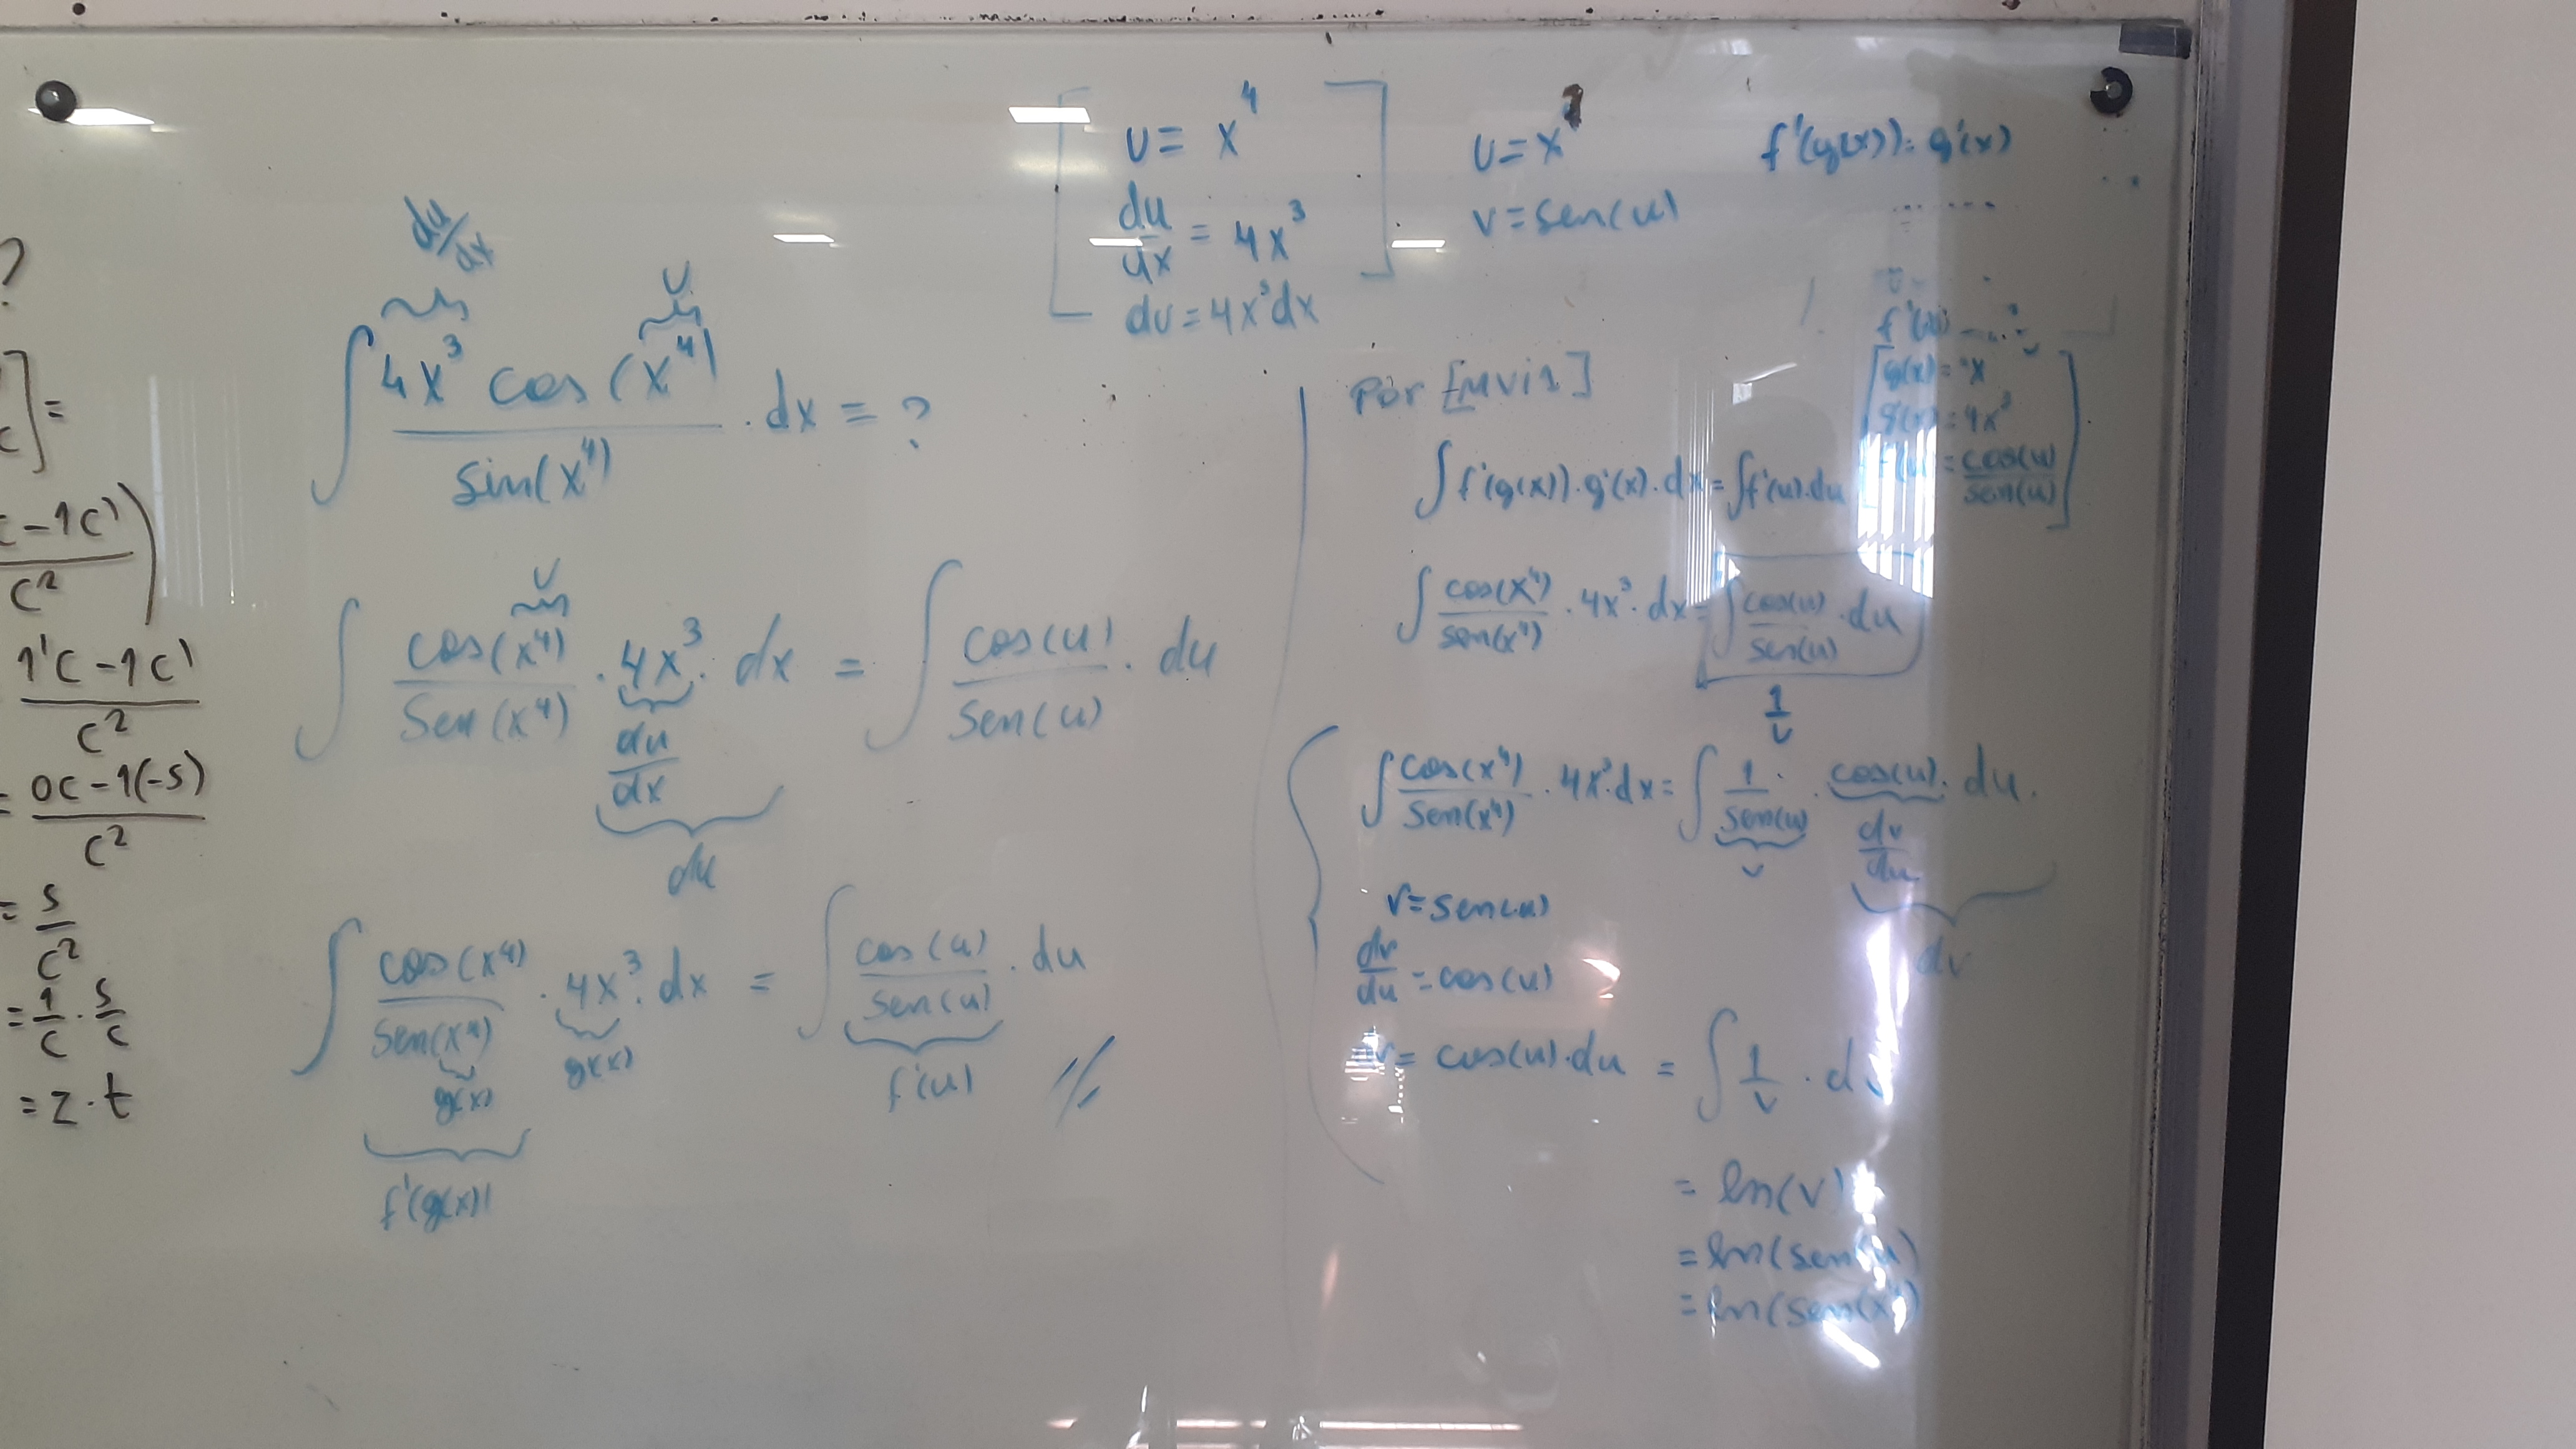 ?
]=
c
c-1c')
c²
1'c-1c'
c²
= 0c-1(-s)
c²
= s
c²
= 1/c · s/c
= z·t
du/dx
u
∫ 4x³ cos(x⁴) / sin(x⁴) . dx = ?
u
∫ cos(x⁴)/sen(x⁴) . 4x³ . dx = ∫ cos(u)/sen(u) . du
du/dx
du
∫ cos(x⁴)/sen(x⁴) . 4x³ . dx = ∫ cos(u)/sen(u) . du
g(x) g(x) f'(u) //
f'(g(x))
[ u = x⁴
du/dx = 4x³ ]
du = 4x³dx
u = x
v = sen(u)
f'(g(x)). g'(x)
Por [MVI1]
g(x) = x
g'(x) = 4x³
= cos(u)/sen(u) ]
∫ f'(g(x)).g'(x).dx = ∫f'(u).du
∫ cos(x⁴)/sen(x⁴) . 4x³. dx = ∫ cos(u)/sen(u) . du
1/v
∫ cos(x⁴)/sen(x⁴) . 4x³.dx = ∫ 1/sen(u) . cos(u). du.
v dv/du
dv
v = sen(u)
dv/du = cos(u)
dv = cos(u).du = ∫ 1/v . dv
= ln(v)
= ln(sen(u)
= ln(sen(x⁴)